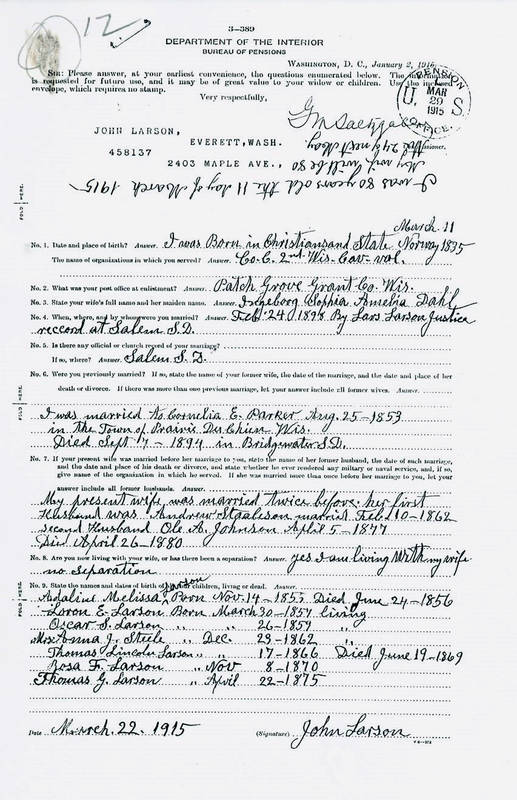 12
3-389
DEPARTMENT OF THE INTERIOR
BUREAU OF PENSIONS
WASHINGTON, D. C., January 2, 1915.
SIR: Please answer, at your earliest convenience, the questions enumerated below. The information
is requested for future use, and it may be of great value to your widow or children. Use the inclosed
envelope, which requires no stamp.
Very respectfully,
PENSION
U. S.
MAR
29
1915
OFFICE.
JOHN LARSON,
EVERETT, WASH.
458137
2403 MAPLE AVE.,
Commissioner.
My wife will be 80
the 24 of next May
I was 80 years old the 11 day of March 1915
FOLD HERE.
March 11
No. 1. Date and place of birth? Answer. I was Born in Christiansand State Norway 1835
The name of organizations in which you served? Answer. Co. C. 2nd Wis. Cav. vol.
No. 2. What was your post office at enlistment? Answer. Patch Grove Grant Co. Wis.
No. 3. State your wife's full name and her maiden name. Answer. Ingeborg Sophia Amelia Dahl
No. 4. When, where, and by whom were you married? Answer. Feb 24 1898 By Lars Larson Justice
reccord at Salem S.D.
No. 5. Is there any official or church record of your marriage?
If so, where? Answer. Salem S.D.
No. 6. Were you previously married? If so, state the name of your former wife, the date of the marriage, and the date and place of her
death or divorce. If there was more than one previous marriage, let your answer include all former wives. Answer.
FOLD HERE.
I was married to Cornelia E. Parker Aug. 25-1853
in the Town of Prairie Du Chien Wis.
Died Sept 17-1894 in Bridgewater S.D.
No. 7. If your present wife was married before her marriage to you, state the name of her former husband, the date of such marriage,
and the date and place of his death or divorce, and state whether he ever rendered any military or naval service, and, if so,
give name of the organization in which he served. If she was married more than once before her marriage to you, let your
answer include all former husbands. Answer.
May present wife was married twice before her first
Husband was Andrew married Feb 10-1862
second Husband Ole A. Johnson April 5-1877
Died April 26-1880
No. 8. Are you now living with your wife, or has there been a separation? Answer. yes I am living With my wife
no separation
No. 9. State the names and dates of birth of all your children, living or dead. Answer.
FOLD HERE.
Larson
Adaline Melissa, Born Nov. 14-1855 Died June 24-1856
Loron E. Larson Born March 30-1857 living
Oscar S. Larson " " 26-1859 "
Mrs. Anna J. Steele " Dec. 29-1862 "
Thomas Lincoln Larson " " 17-1866 Died June 19-1869
Rosa F. Larson " Nov 8-1870
Thomas G. Larson " April 22-1875
Date March. 22. 1915
(Signature) John Larson